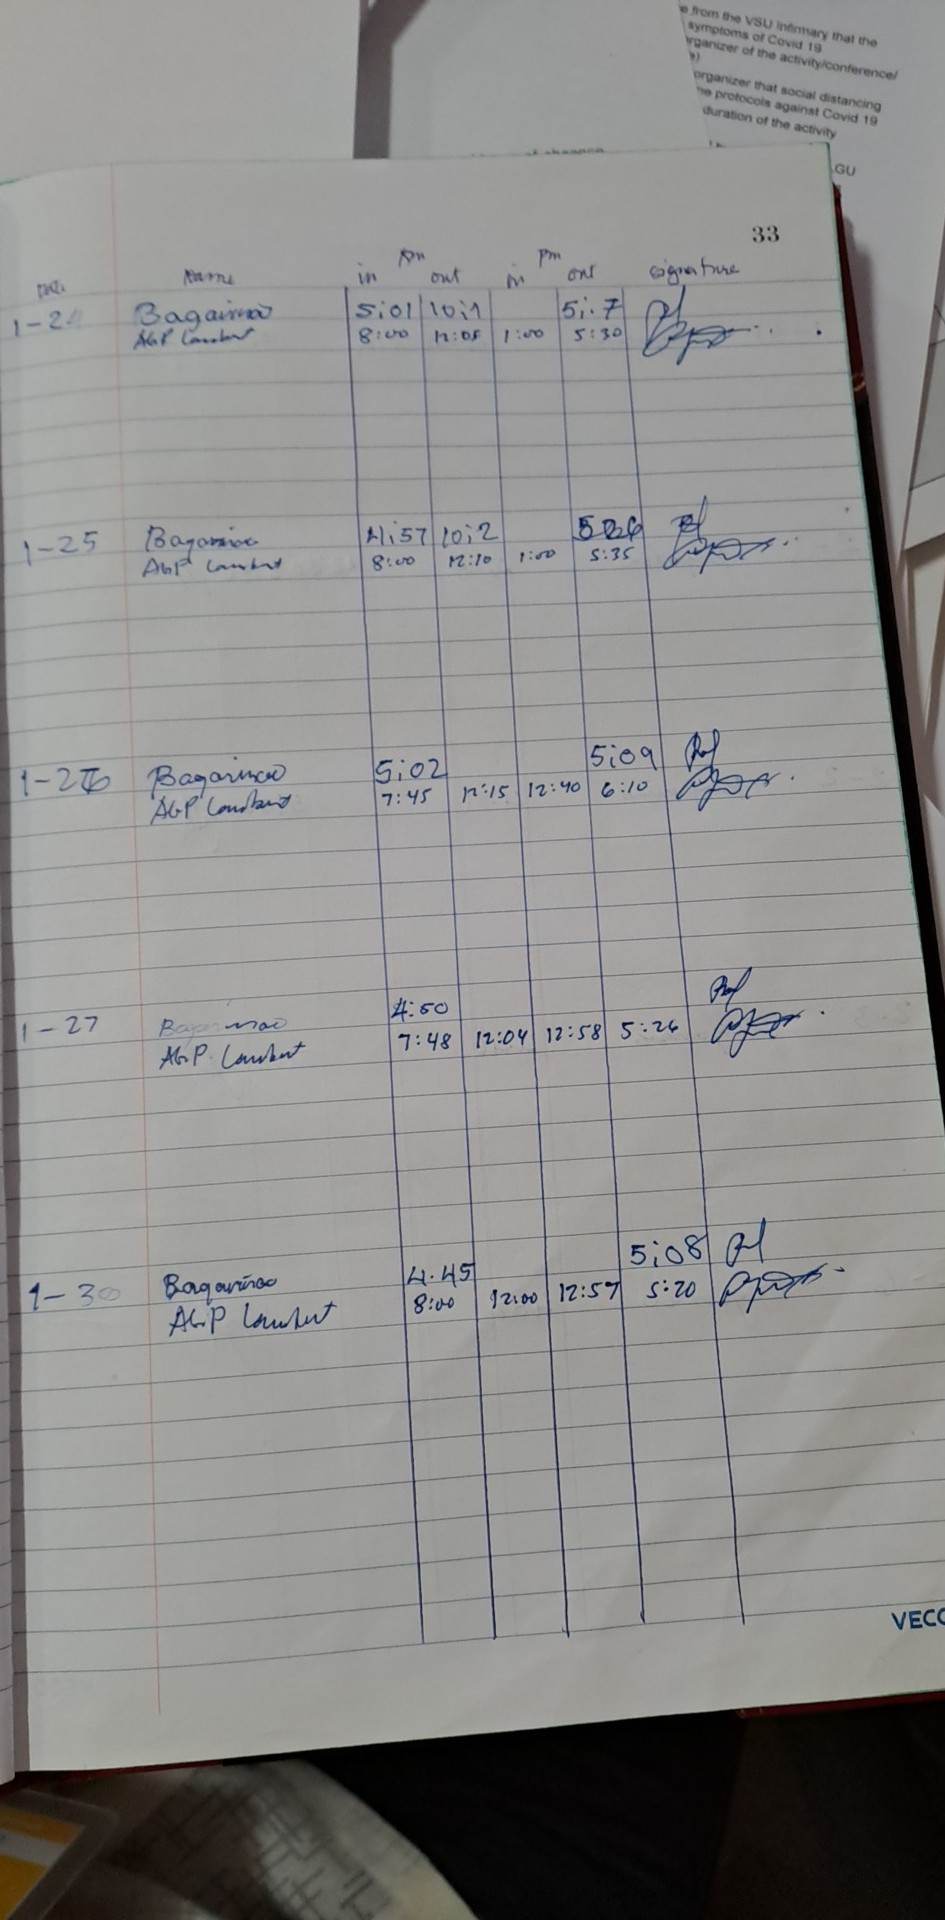 e from the VSU Infirmary that the
symptoms of Covid 19
rganizer of the activity/conference/
e)
organizer that social distancing
he protocols against Covid 19
duration of the activity
GU
33
Am Pm
Name in out in out signature
1-2 Bagarinao 5:01 10:1 5:.7
AGP 8:00 12:05 1:00 5:30
1-25 Bagarinao 4:57 10:2
AGP 8:00 12:10 1:00 5:35
1-26 Bagarinao 5:02 5:09
AGP 7:45 12:15 12:40 6:10
1-27 Bagarinao 4:50
AGP 7:48 12:04 12:58 5:26
1-30 Bagarinao 4.45 5:08
AGP 8:00 12:00 12:57 5:20
VECO